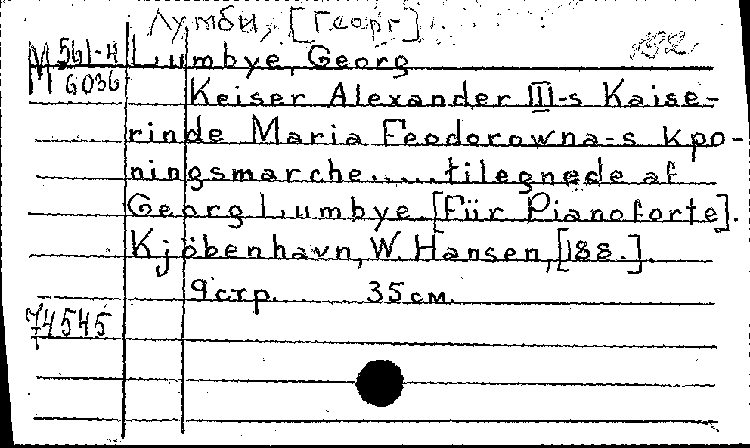 Лумби, [Георг]
М 561-4 Lumbye, Georg
6036
Keiser Alexander III-s Kaise-
rinde Maria Feodorowna-s kро-
ningsmarche.....tilegnede af
Georg Lumbye. [Für Pianoforte].
Kjöbenhavn, W. Hansen, [188.].
9 стр. 35 см.
74545